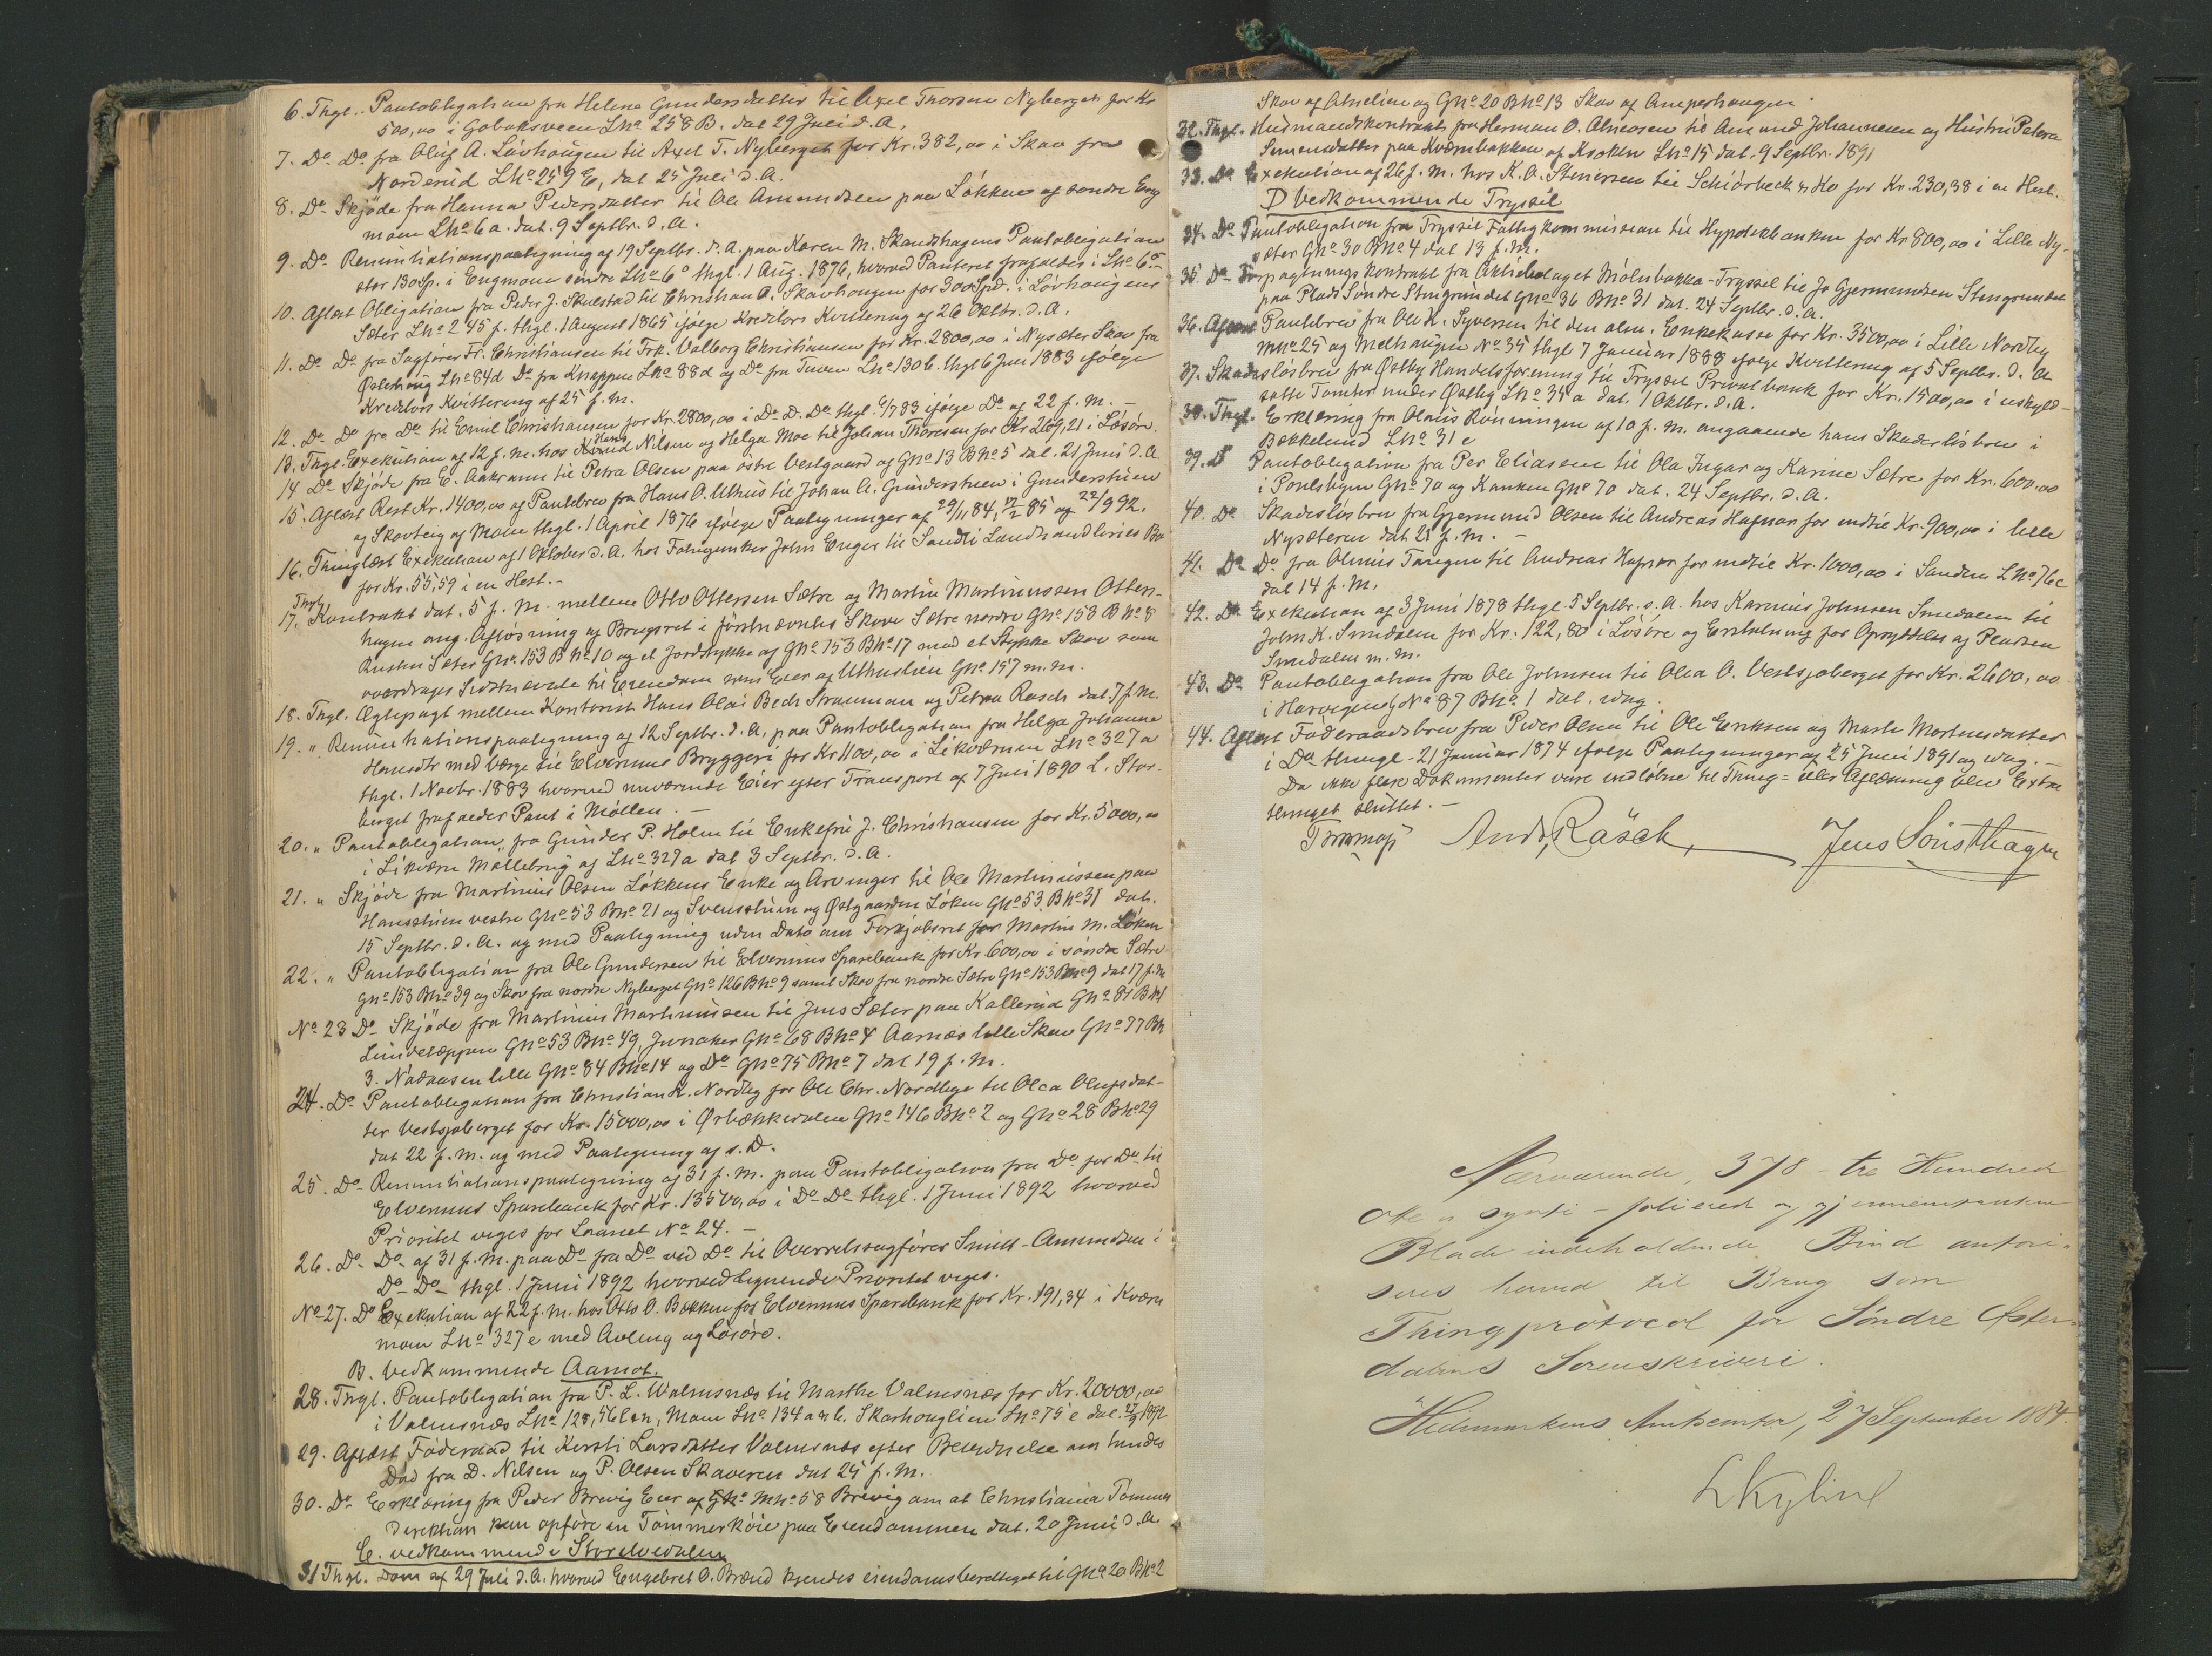 6. Thgl. Pantobligation fra Helene Gundersdatter til Axel Thorsen Nyberget for Kr
500,00 i Gobaksveen Lno 258 B. dat 29 Juli d. A.
7. Do Do fra Oluf A. Lövhaugen til Axel T. Nyberget for Kr. 382,00 i Skov fra
Norderud LNo 259 E, dat 25 Juli d. A.
8. Do Skjöde fra Hanna Pedersdatter til Ole Amundsen paa Lökken af söndre Eng
moen LNo 6 a. dat. 9 Septbr. d. A.
9. Do Renuntiationspaategning af 19 Septbr. d. A. paa Karen M. Skandshagens Pantobligation
stor 130 Sp. i Engmoen söndre LNo 6 thgl. 1 Aug. 1876, hvorved Panteret frafaldes i LNo 6
10. Aflæst Obligation fra Peder J. Skulstad til Christian A. Skavhaugen for 300 Spd. i Lövhaugens
Sæter LNo 245 f. thgl. 1 August 1865 ifölge Kreditors Kvittering af 26 Oktbr. d. A.
11. Do Do fra Sagförer Fr. Christiansen til Frk. Valborg Christiansen for Kr. 2800,00 i Nysæter Skov fra
Österhaug LNo 84d Do fra Knappen LNo 88d og Do fra Tuven LNo 130 b. thgl 6 Juni 1883 ifölge
Kreditors Kvittering af 25 f. M.
12. Do Do fra Do til Emil Christiansen for Kr. 2800,00 i Do D. Do thgl. 6/7 83 ifölge Do af 22 f. M. –
13. Thgl. Exekution af 12 f. M. hos Hans Nilsen og Helga Moe til Johan Thoresen for Kr 269,21 i Lösöre.
14 Do Skjöde fra E. Aakrann til Petra Olsen paa östre Vestgaard af GNo 13 BNo 5 dat. 21 Juni d. A.
15. Aflæst Rest Kr. 1400,00 af Pantebrev fra Hans O. Uthus til Johan A. Gundersthuen i Gundersthuen
og Skovteig af Moen thgl. 1 April 1876 ifölge Paategninger af 29/11 84, 17/2 85 og 22/9 92.
16. Thinglæst Exekution af 1 Oktober d. A. hos John Enger til Sandli Landhandleries Bo
for Kr. 55,59 i en Hest. –
Thgl
17. Kontrakt dat. 5 f. M. mellem Otto Ottersen Sætre og Martin Martinussen Otters-
hagen ang. Aflösning af Brugsret i förstnævntes Skove Sætre nordre GNo 153 B No 8
Rusten Sæter GNo 153 B No 10 og et Jordstykke af GNo 153 BNo 17 med et Stykke Skov som
overdrages Sidstnævnte til Eiendom som Eier af Uthuslien GNo 157 m. m.
18. Thgl. Ægtepagt mellem Kontorist Hans Olai Bech Straumann og Petra Rasch dat. 7 f. M.
19. " Renuntiationspaategning af 12 Septbr. d. A. paa Pantobligation fra Helga Johanne
Hansdtr med Værge til Elverums Bryggeri for Kr 1100,00 i Likværnen LNo 327 a
thgl. 1 Novbr. 1883 hvorved nuværende Eier efter Transport af 7 Juni 1890 L. Stor-
berget frafalder Pant i Möllen. –
20. " Pantobligation fra Gunder P. Holen til Enkefru J. Christiansen for Kr. 5000,00
i Likværn Möllebrug af LNo 327 a dat 3 Septbr. d. A.
21. " Skjöde fra Martinus Olsen Lökkens Enke og Arvinger til Ole Martinussen paa
Hansstuen vestre GNo 53 BNo 21 og Svensstuen og Östgaarden Löken GNo 53 BNo 31 dat.
15 Septbr. d. A. og med Paategning uden Dato om Forkjöbsret for Martin M. Löken
22. " Pantobligation fra Ole Gundersen til Elverums Sparebank for Kr. 600,00 i söndre Sætre
GNo 153 BNo 39 og Skov fra nordre Nyberget GNo 126 BNo 9 samt Skov fra nordre Sætre GNo 153 BNo 9 dat 17 f. M
No 23 Do Skjöde fra Martinus Martinussen til Jens Sæter paa Kallerud GNo 81 B No 1
Lundetæppen GNo 53 BNo 49, Junaker GNo 68 BNo 4 Aarnæs lille Skov GNo 77 BNo
3. Nodaasen lille GNo 84 BNo 14 og Do GNo 75 BNo 7 dat 19 f. M.
24. Do Pantobligation fra Christian K. Nordby for Ole Chr. Nordbye til Olea Olufsdat-
ter Vestsjöberget for Kr. 15000,00 i Örbækkedalen GNo 146 BNo 2 og GNo 28 BNo 29
dat 22 f. M. og med Paategning af s. D.
25. Do Renuntiationspaategning af 31 f. M. paa Pantobligation fra Do for Do til
Elverums Sparebank for Kr. 13500,00 i Do Do thgl. 1 Juni 1892 hvorved
Prioritet viges for Laanet No 24. –
26. Do Do af 31 f. M. paa Do fra Do ved Do til Overretssagförer Smith-Amundsen i
Do Do thgl. 1 Juni 1892 hvorved lignende Prioritet viges.
No 27. Do Exekution af 22 f. M. hos Otto O. Bækken for Elverums Sparebank for Kr. 191,34 i Kværn
moen LNo 327 e med Avling og Lösöre.
B. Vedkommende Aamot.
28. Thgl. Pantobligation fra P. L. Walmsnæs til Marthe Valmsnæs for Kr. 20000,00
i Valmsnæs LNo 128, Moen LNo 134 a & b. Skarhauglien LNo 75 e dat. 27/9 1892
29. Aflæst Föderaad til Kersti Larsdatter Valmsnæs efter Bevidnelse om hendes
Död fra D. Nilsen og P. Olsen Skaveren dat 25 f. M.
30. Do Erklæring fra Peder Brevig Eier af MNo 58 Brevig om at Christiania Tömmer
direktion kan opföre en Tömmerköie paa Eiendommen dat. 20 Juni d. A
C. vedkommende Storelvedalen
31 Thgl. Dom af 29 Juli d. A. hvorved Engebret O. Brænd kjendes eiendomsberettiget til GNo 20 BNo 2
Skov af Atnelien og GNo 20 BNo 13 Skov af Amperhaugen.
32. Thgl. Husmandskontrakt fra Herman O. Atneosen til Amund Johannesen og Hustru Petra
Simensdatter paa Kværnbakken af Kroken LNo 15 dat. 9 Septbr. 1891
33. Do Exekution af 26 f. M. hos K. A. Stenersen til Schiörbeck & Ko for Kr. 230,38 i en Hest.
D Vedkommende Trysil
34. Do Pantobligation fra Trysil Fattigkommission til Hypothekbanken for Kr 800,00 i Lille Ny-
sæter GNo 30 BNo 4 dat 13 f. M.
35 Do Forpagtningskontrakt fra Aktiebolaget Mölnbakka-Trysil til Jo Gjermundsen Stengrundet
paa Plads Söndre Stengrundet GNo 36 BNo 31 dat. 24 Septbr. d. A.
36. Aflæst Pantebrev fra Ole K. Syversen til den alm. Enkekasse for Kr. 3500,00 i Lille Nordby
MNo 25 og Melhaugen No 35 thgl 7 Januar 1888 ifölge Kvittering af 5 Septbr. d. A.
37. Skadeslösbrev fra Östby Handelsforening til Trysil Privatbank for Kr. 1500,00 i uskyld-
satte Tomter under Östby LNo 35 a dat. 1 Oktbr. d. A.
38. Thgl. Erklæring fra Olaus Rönningen af 10 f. M. angaaende hans Skadeslösbrev i
Bækkelund LNo 31 e
39. Do Pantobligation fra Per Eliassen til Ola Ingar og Karine Sætre for Kr. 600,00
i GNo 70 og Kanken GNo 70 dat. 24 Septbr. d. A.
40. Do Skadeslösbrev fra Gjermund Olsen til Andreas Hafnor for indtil Kr. 900,00 i lille
Nysæteren dat 21 f. M. –
41. Do Do fra Olmus Tangen til Andreas Hafnor for indtil Kr. 1000,00 i Sanden LNo 76 c
dat 14 f. M.
42. Do Exekution af 3 Juni 1878 thgl. 5 Septbr. s. A. hos Karinius Johnsen Smedalen til
John K. Smedalen for Kr. 122,80 i Lösöre og Erstatning for Opryddelse af Pladsen
Smedalen m. m.
43. Do Pantobligation fra Ole Johnsen til Olea O. Vestsjöberget for Kr. 2600,00
i GNo 87 BNo 1 dat. idag.
44. Aflæst Föderaadsbrev fra Peder Olsen til Ole Eriksen og Marte Mortensdatter
i Do thingl. 21 Januar 1874 ifölge Paategninger af 25 Juni 1891 og idag. –
Da ikke flere Dokumenter vare indlöbne til Thing- eller Aflæsning blev Extra
thinget sluttet. –
Andr. Räsch, Jens Sönsthagen
Nærværende, 378 – tre Hundrede
otte og sytti – foliered og gjennemtrukne
Blade indeholdende Bind autori-
seres herved til Brug som
Thingprotocol for Söndre Öster-
dalens Sorenskriveri.
Hedemarkens Amtscontor, 27 September 1884.